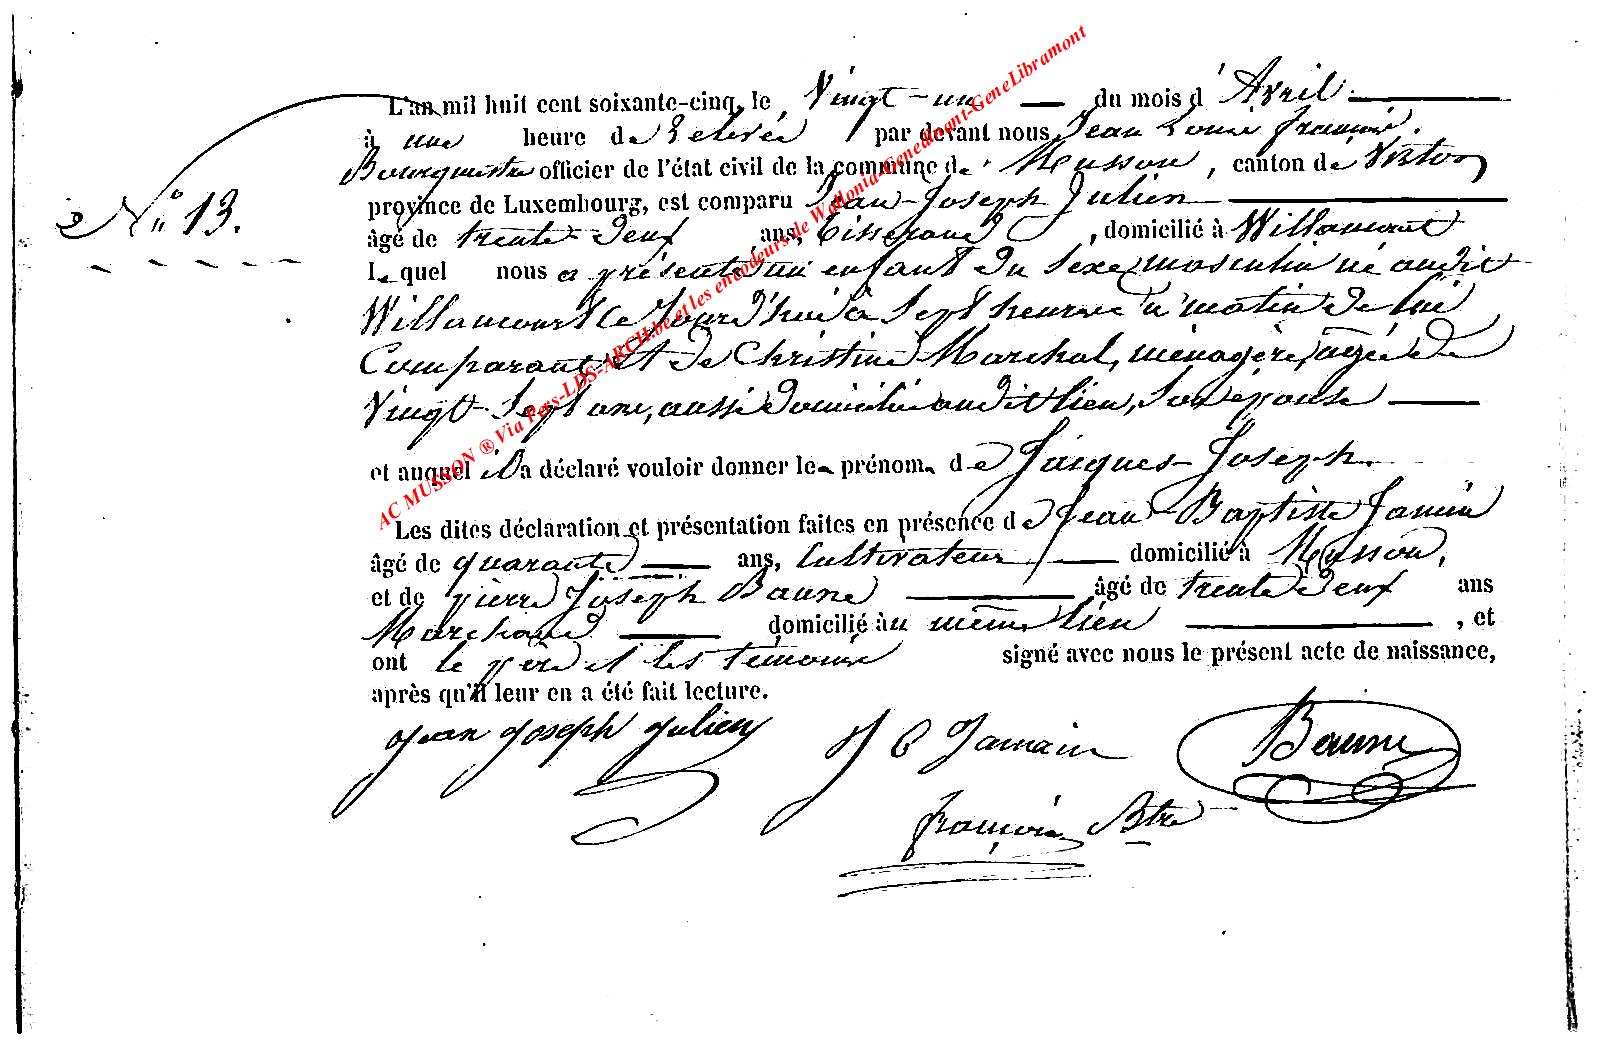 L'an mil huit cent soixante-cinq, le Vingt-un du mois d'Avril
à une heure de relevée par devant nous Jean Louis François.
Bourgmestre officier de l'état civil de la commune de Musson, canton de Virton
N° 13.
province de Luxembourg, est comparu Jean-Joseph Julien
âgé de trente deux ans, Tisserand, domicilié à Willancourt
Lequel nous a présenté un enfant du sexe masculin né audit
Willancourt ce jourd'hui à sept heures du matin de lui
Comparant et de Christine Marchal, ménagère, agée de
Vingt-Sept ans, aussi domicilié audit lien, son épouse
et auquel il a déclaré vouloir donner le prénom de Jacques-Joseph.
Les dites déclaration et présentation faites en présence de Jean Baptiste Jamin
âgé de quarante ans, Cultivateur domicilié à Musson,
et de pierre Joseph Baune âgé de trente deux ans
Marchand domicilié au même lieu, et
ont le père et les témoins signé avec nous le présent acte de naissance,
après qu'il leur en a été fait lecture.
Jean Joseph Julien J B Jamain Baune
françois Btre
AC MUSSON ® Via Pers-LDS-ARCH.be et les encodeurs de Wallonia-Genedinant-GeneLibramont